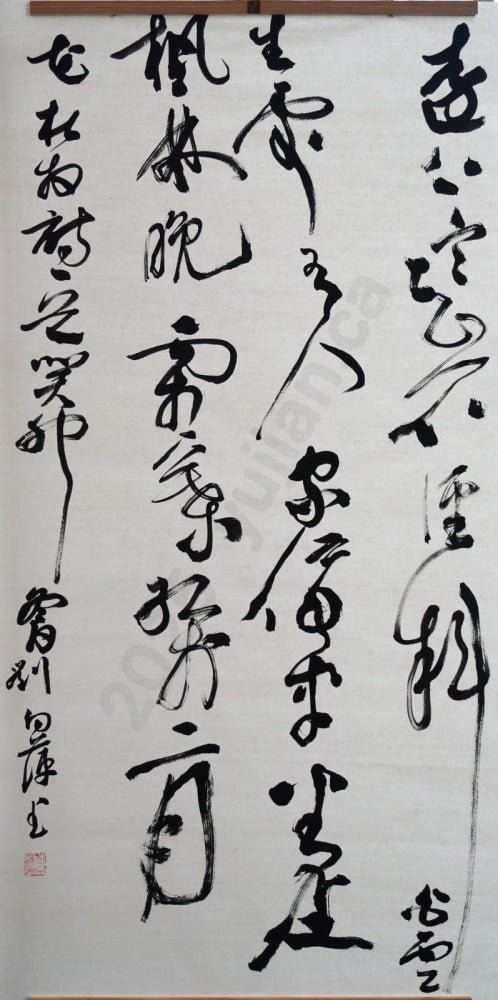 遠上寒山石徑斜白雲
生處有人家停車坐愛
楓林晚霜葉紅於二月
花杜牧詩一首癸卯劉白書
yujian.ca